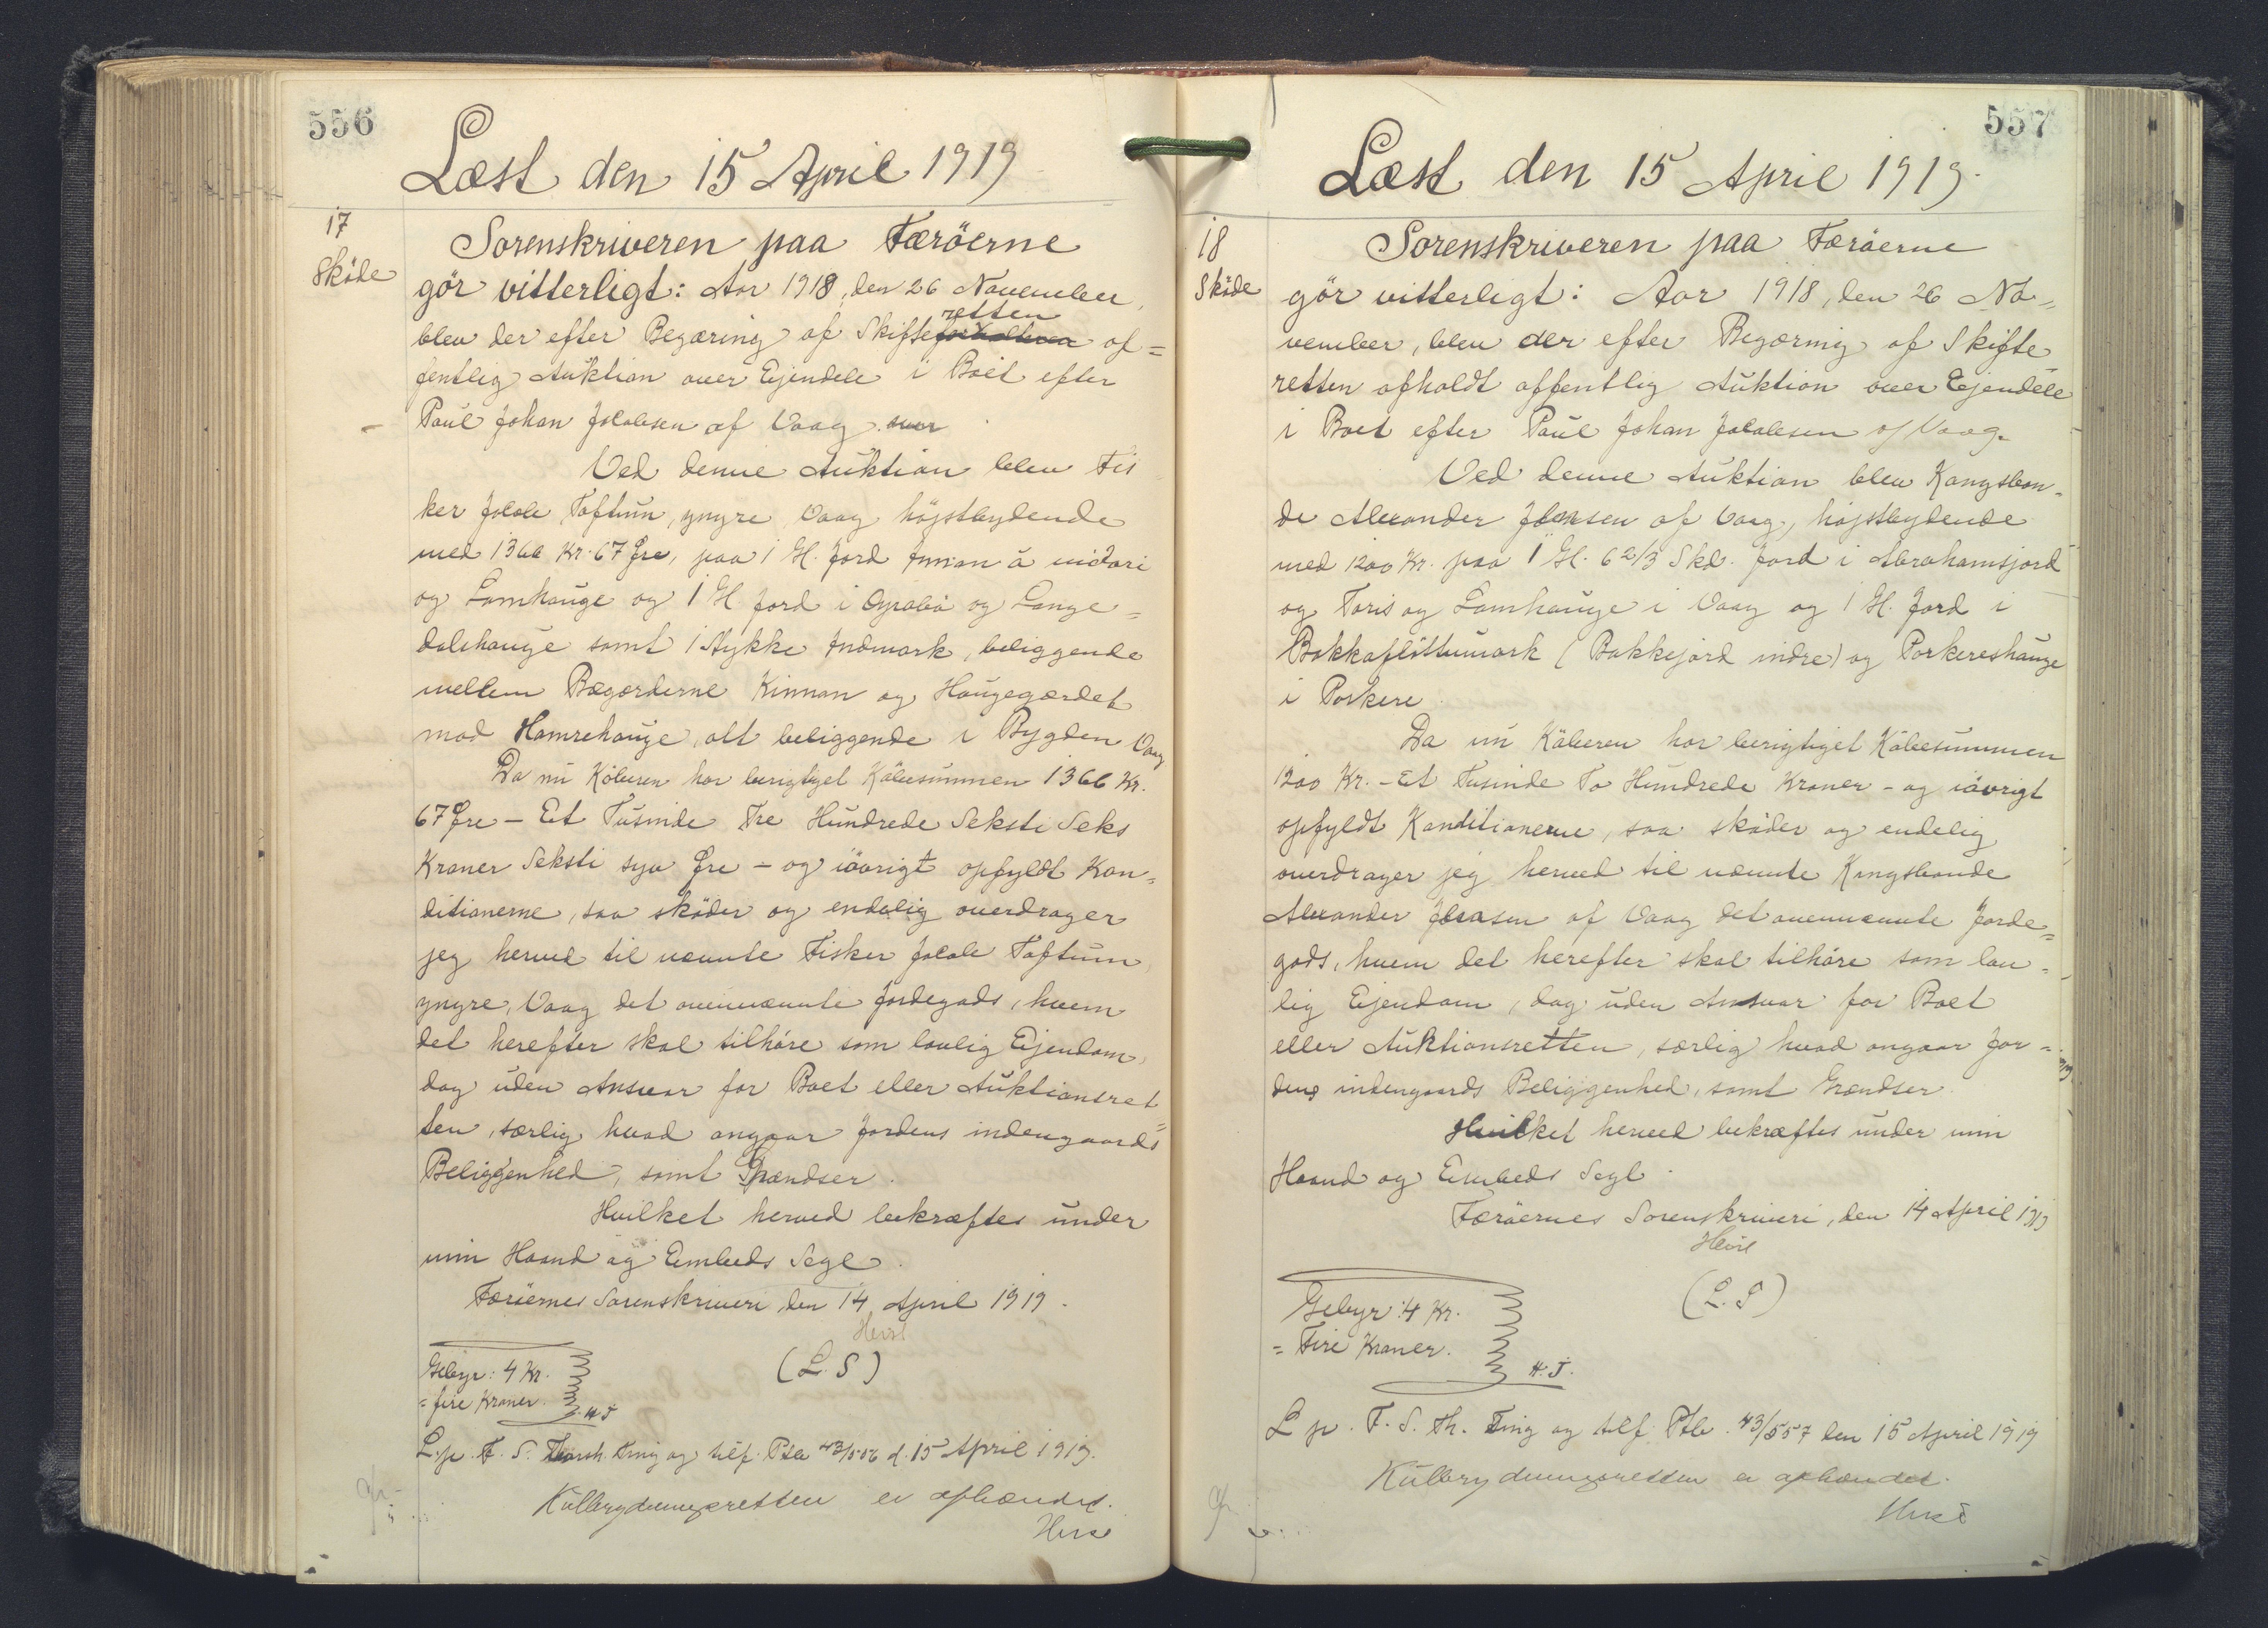 556
Læst den 15 April 1919
17
Sköde
Sorenskriveren paa Færöerne
gör vitterligt: Aar 1918, den 26 November,
retten
blev der efter Begæring af Skifte of=
fentlig Auktion over Ejendele i Boet efter
Poul Johan Jacobsen af Vaag. over
Ved denne Auktion blev Fis
ker Jacob Toftum, yngre, Vaag højstbydende
med 1366 Kr. 67 Øre, paa 1 Gl. Jord Innan á midari
og Lamhauge og 1 Gl Jord i og Lange=
dalshauge samt 1 Stykke Indmark, beliggende
mellem Bøgærderne Kinnan og Haugegærdet
mod Hamrehauge, alt beliggende i Bygden Vaag
Da nu Köberen har berigtiget Købesummen 1366 Kr.
67 Øre - Et Tusinde Tre Hundrede Seksti Seks
Kroner Seksti syv Øre - og iövrigt opfyldt Kon=
ditionerne, saa sköder og endelig overdrager
jeg herved til nævnte Fisker Jacob Toftum,
yngre, Vaag det ovennævnte Jordegods, hvem
det herefter skal tilhöre som lovlig Ejendom,
dog uden Ansvar for Boet eller Auktionsret=
ten, særlig hvad angaar Jordens indengaards
Beliggenhed, samt Grændser.
Hvilket herved bekræftes under
min Haand og Embeds Segl.
Færöernes Sorenskriveri den 14 April 1919.
(L. S)
Gebyr: 4 Kr.
= fire Kroner.
H J
L. p. F. S. Thorsh. Ting og tilf. Ptb 43/556 d. 15 April 1919.
Kulbrydningsretten er afhændet.
557
Læst den 15 April 1919.
18
Sköde
Sorenskriveren paa Færöerne
gör vitterligt: Aar 1918, den 26 No=
vember, blev der efter Begæring af Skifte
retten afholdt offentlig Auktion over Ejendele
i Boet efter Poul Johan Jacobsen af Vaag.
Ved denne Auktion blev Kongsbon=
de Alexander af Vaag, højstbydende
med 1200 Kr. paa 1 Gl. 6 2/3 Skd. Jord i Abrahamsjord
og Toris og Lamhauge i Vaag og 1 Gl. Jord i
Bakkaflöttumark (Bakkejord indre) og Porkereshauge
i Porkere.
Da nu Köberen har berigtiget Köbesummen
1200 Kr. - Et Tusinde To Hundrede Kroner - og iövrigt
opfyldt Konditionerne, saa sköder og endelig
overdrager jeg herved til nævnte Kongsbonde
Alexander af Vaag det ovennævnte Jorde=
gods, hvem det herefter skal tilhöre som lov=
lig Ejendom, dog uden Ansvar for Boet
eller Auktionsretten, særlig hvad angaar Jor=
dens indengaards Beliggenhed, samt Grændser.
Hvilket herved bekræftes under min
Haand og Embeds Segl.
Færöernes Sorenskriveri, den 14 April 1919
(L. S)
Gebyr: 4 Kr.
= Fire Kroner.
H. J.
L p. F. S. Th. Ting og tilf. Ptb. 43/557 den 15 April 1919
Kulbrydningsretten er afhændet.